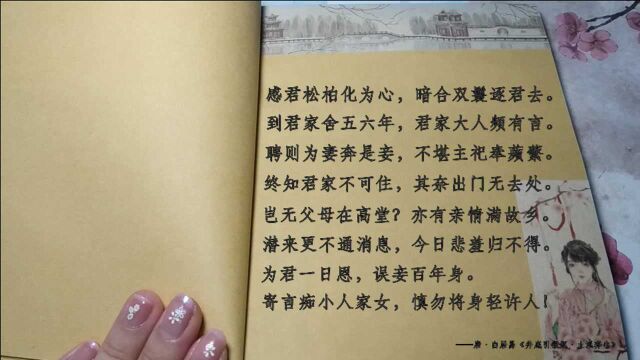 感君松柏化为心，暗合双鬟逐君去。
到君家舍五六年，君家大人频有言。
聘则为妻奔是妾，不堪主祀奉蘋蘩。
终知君家不可住，其奈出门无去处。
岂无父母在高堂？亦有亲情满故乡。
潜来更不通消息，今日悲羞归不得。
为君一日恩，误妾百年身。
寄言痴小人家女，慎勿将身轻许人！
——唐·白居易《井底引银瓶·止淫奔也》